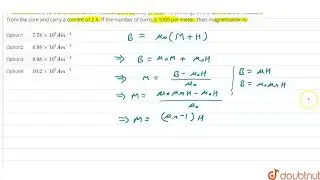 from the core and carry a current of 2 A. If the number of turns is 1000 per meter, then magnetisation is
Option1
Option2
Option3
Option4
B = μ₀(M+H)
⇒ B = μ₀M + μ₀H
⇒ M = B - μ₀H / μ₀
⇒ M = μ₀μrH - μ₀H / μ₀
⇒ M = (μr-1) H
B = μH
B = μ₀μrH
doubtnut